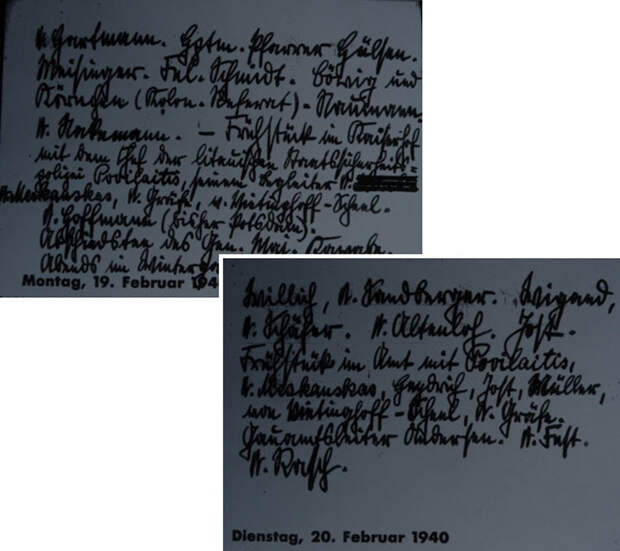 Hartmann. Hptm. Pfarrer Hülsen.
Meisinger. Frl. Schmidt. und
Körnchen (Kolon.-Referat) - Naumann.
- Frühstück im Kaiserhof
mit dem Chef der litauischen Staatssicherheits-
polizei Povilaitis, seinem Begleiter
Meskauskas, Gräfe, v. Vietinghoff-Scheel.
Hoffmann (bisher Potsdam).
Abschiedstee des Gen. Maj. Kawabe.
Abends im
Montag, 19. Februar 194
Willich, Sandberger. Wigand,
Schäfer. Altenloh. Jost.
Frühstück im Amt mit Povilaitis,
Meskauskas, Heydrich, Jost, Müller,
von Vietinghoff-Scheel, Gräfe.
Gauamtsleiter Andersen. Fust.
Rasch.
Dienstag, 20. Februar 1940